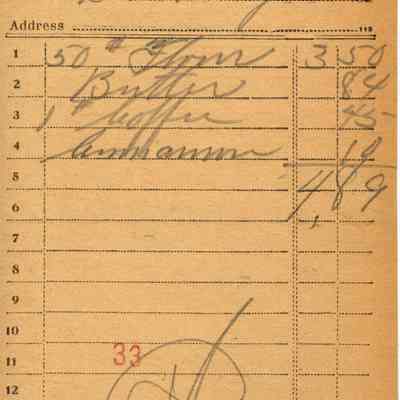 Address
1 50 # Flour 3 50
2 Butter 84
3 1 # Coffee 45
4 Cinnamon 10
5
6 4,89
7
8
9
10
11 33
12